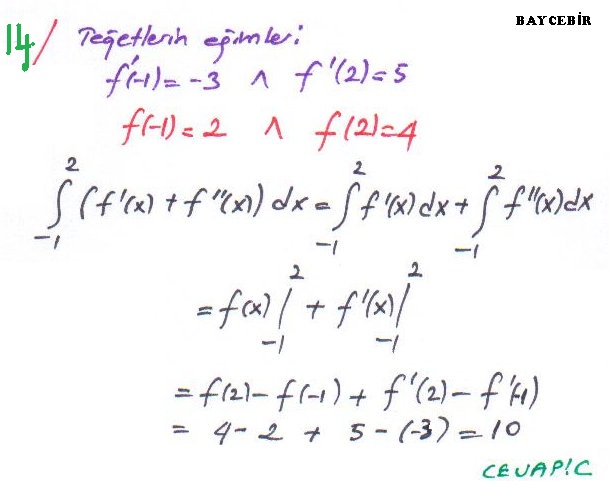 BAYCEBİR
14/ Teğetlerin eğimleri:
f'(-1) = -3 ∧ f'(2) = 5
f(-1) = 2 ∧ f(2) = 4
∫_{-1}^{2} (f'(x) + f''(x)) dx = ∫_{-1}^{2} f'(x) dx + ∫_{-1}^{2} f''(x) dx
= f(x) |_{-1}^{2} + f'(x) |_{-1}^{2}
= f(2) - f(-1) + f'(2) - f'(-1)
= 4 - 2 + 5 - (-3) = 10
CEVAP: C